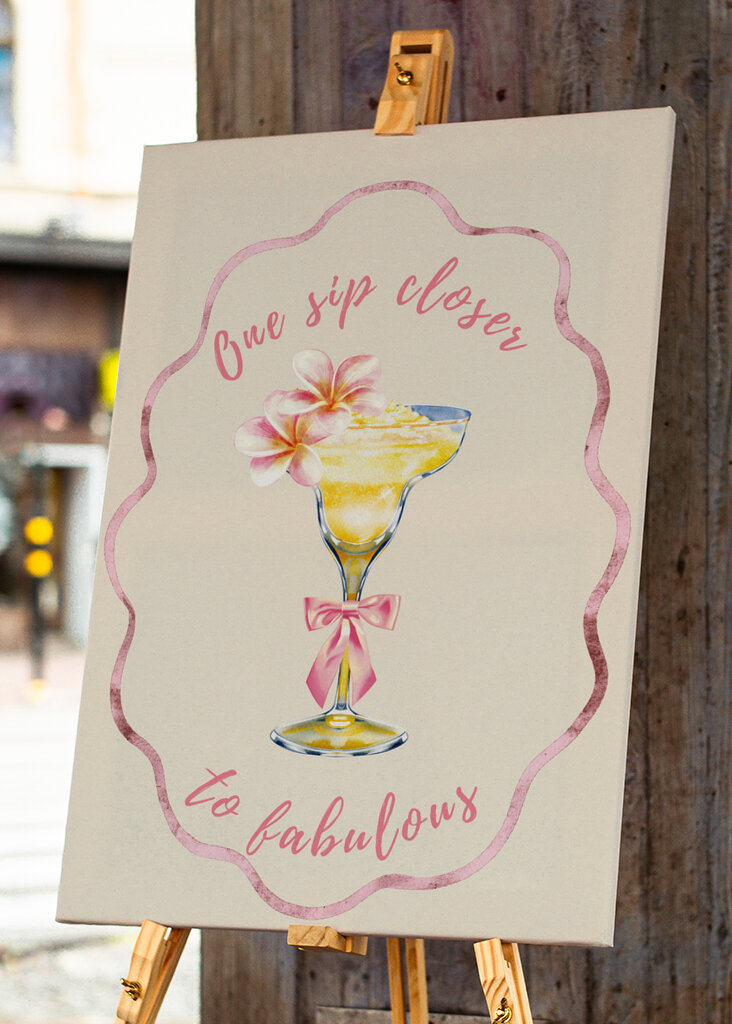 One sip closer
to fabulous